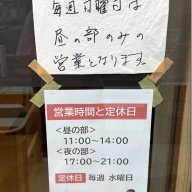 毎週日曜日は
昼の部のみの
営業となります
営業時間と定休日
<昼の部>
11:00～14:00
<夜の部>
17:00～21:00
定休日 毎週 水曜日